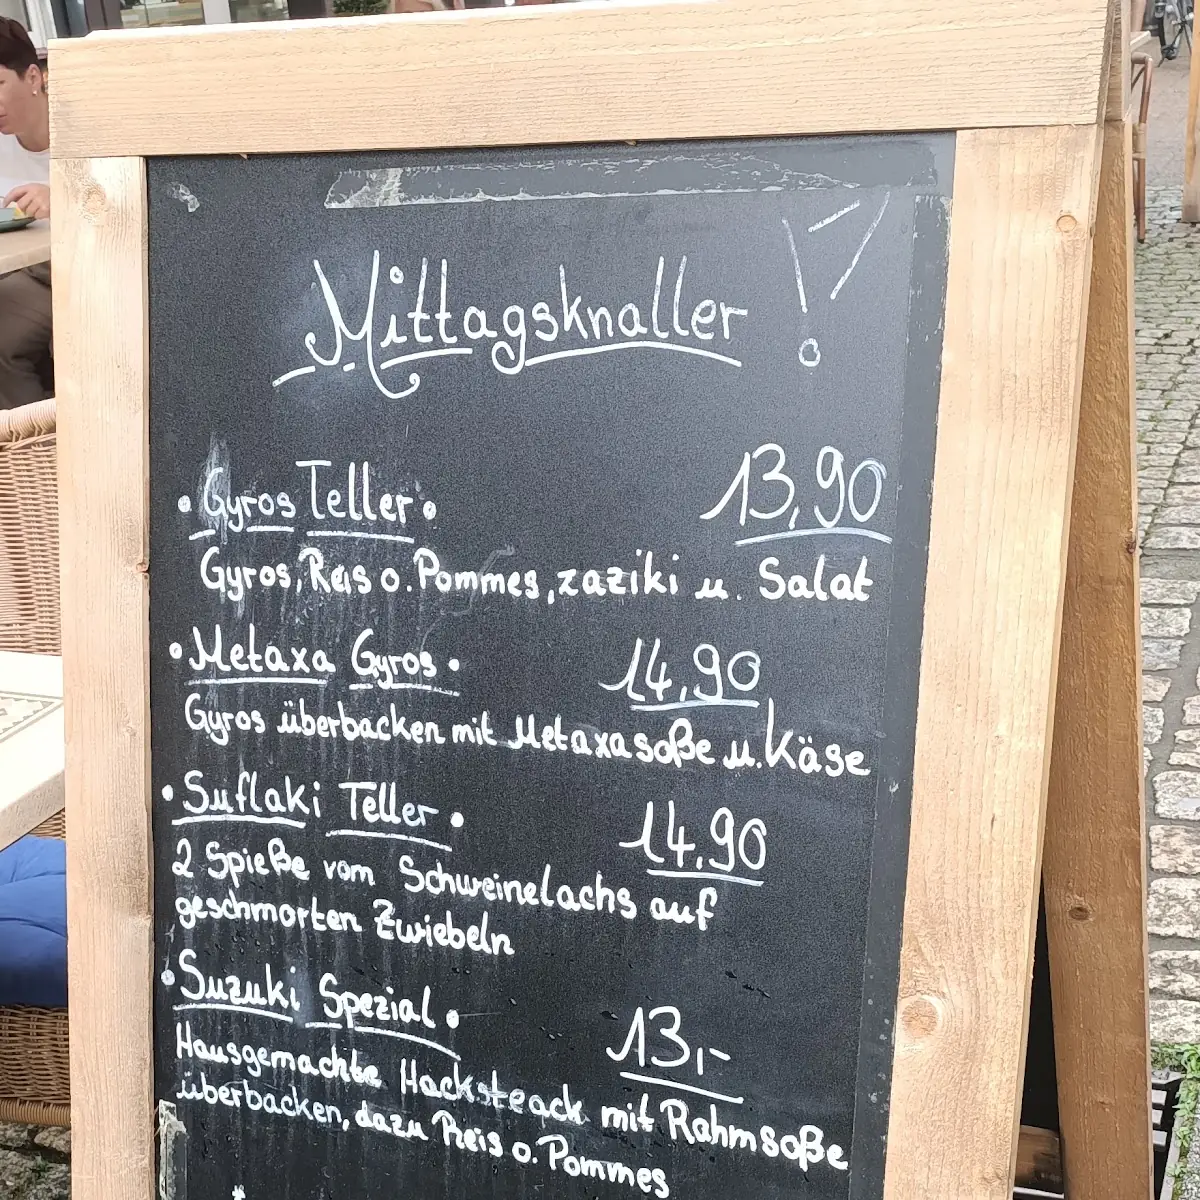 Mittagsknaller!
• Gyros Teller • 13,90
Gyros, Reis o. Pommes, zaziki u. Salat
• Metaxa Gyros • 14,90
Gyros überbacken mit Metaxasoße u. Käse
• Suflaki Teller • 14,90
2 Spieße vom Schweinelachs auf
geschmorten Zwiebeln
• Suzuki Spezial • 13,-
Hausgemachte Hacksteack mit Rahmsoße
überbacken, dazu Reis o. Pommes